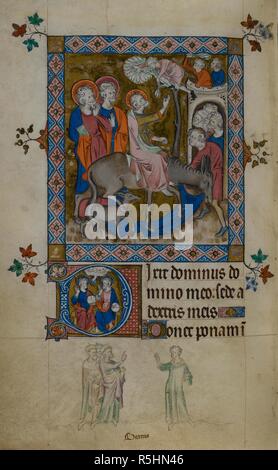 Dixit dominus do
mino meo: sede a
dextris meis
Donec ponam i
R5HN46